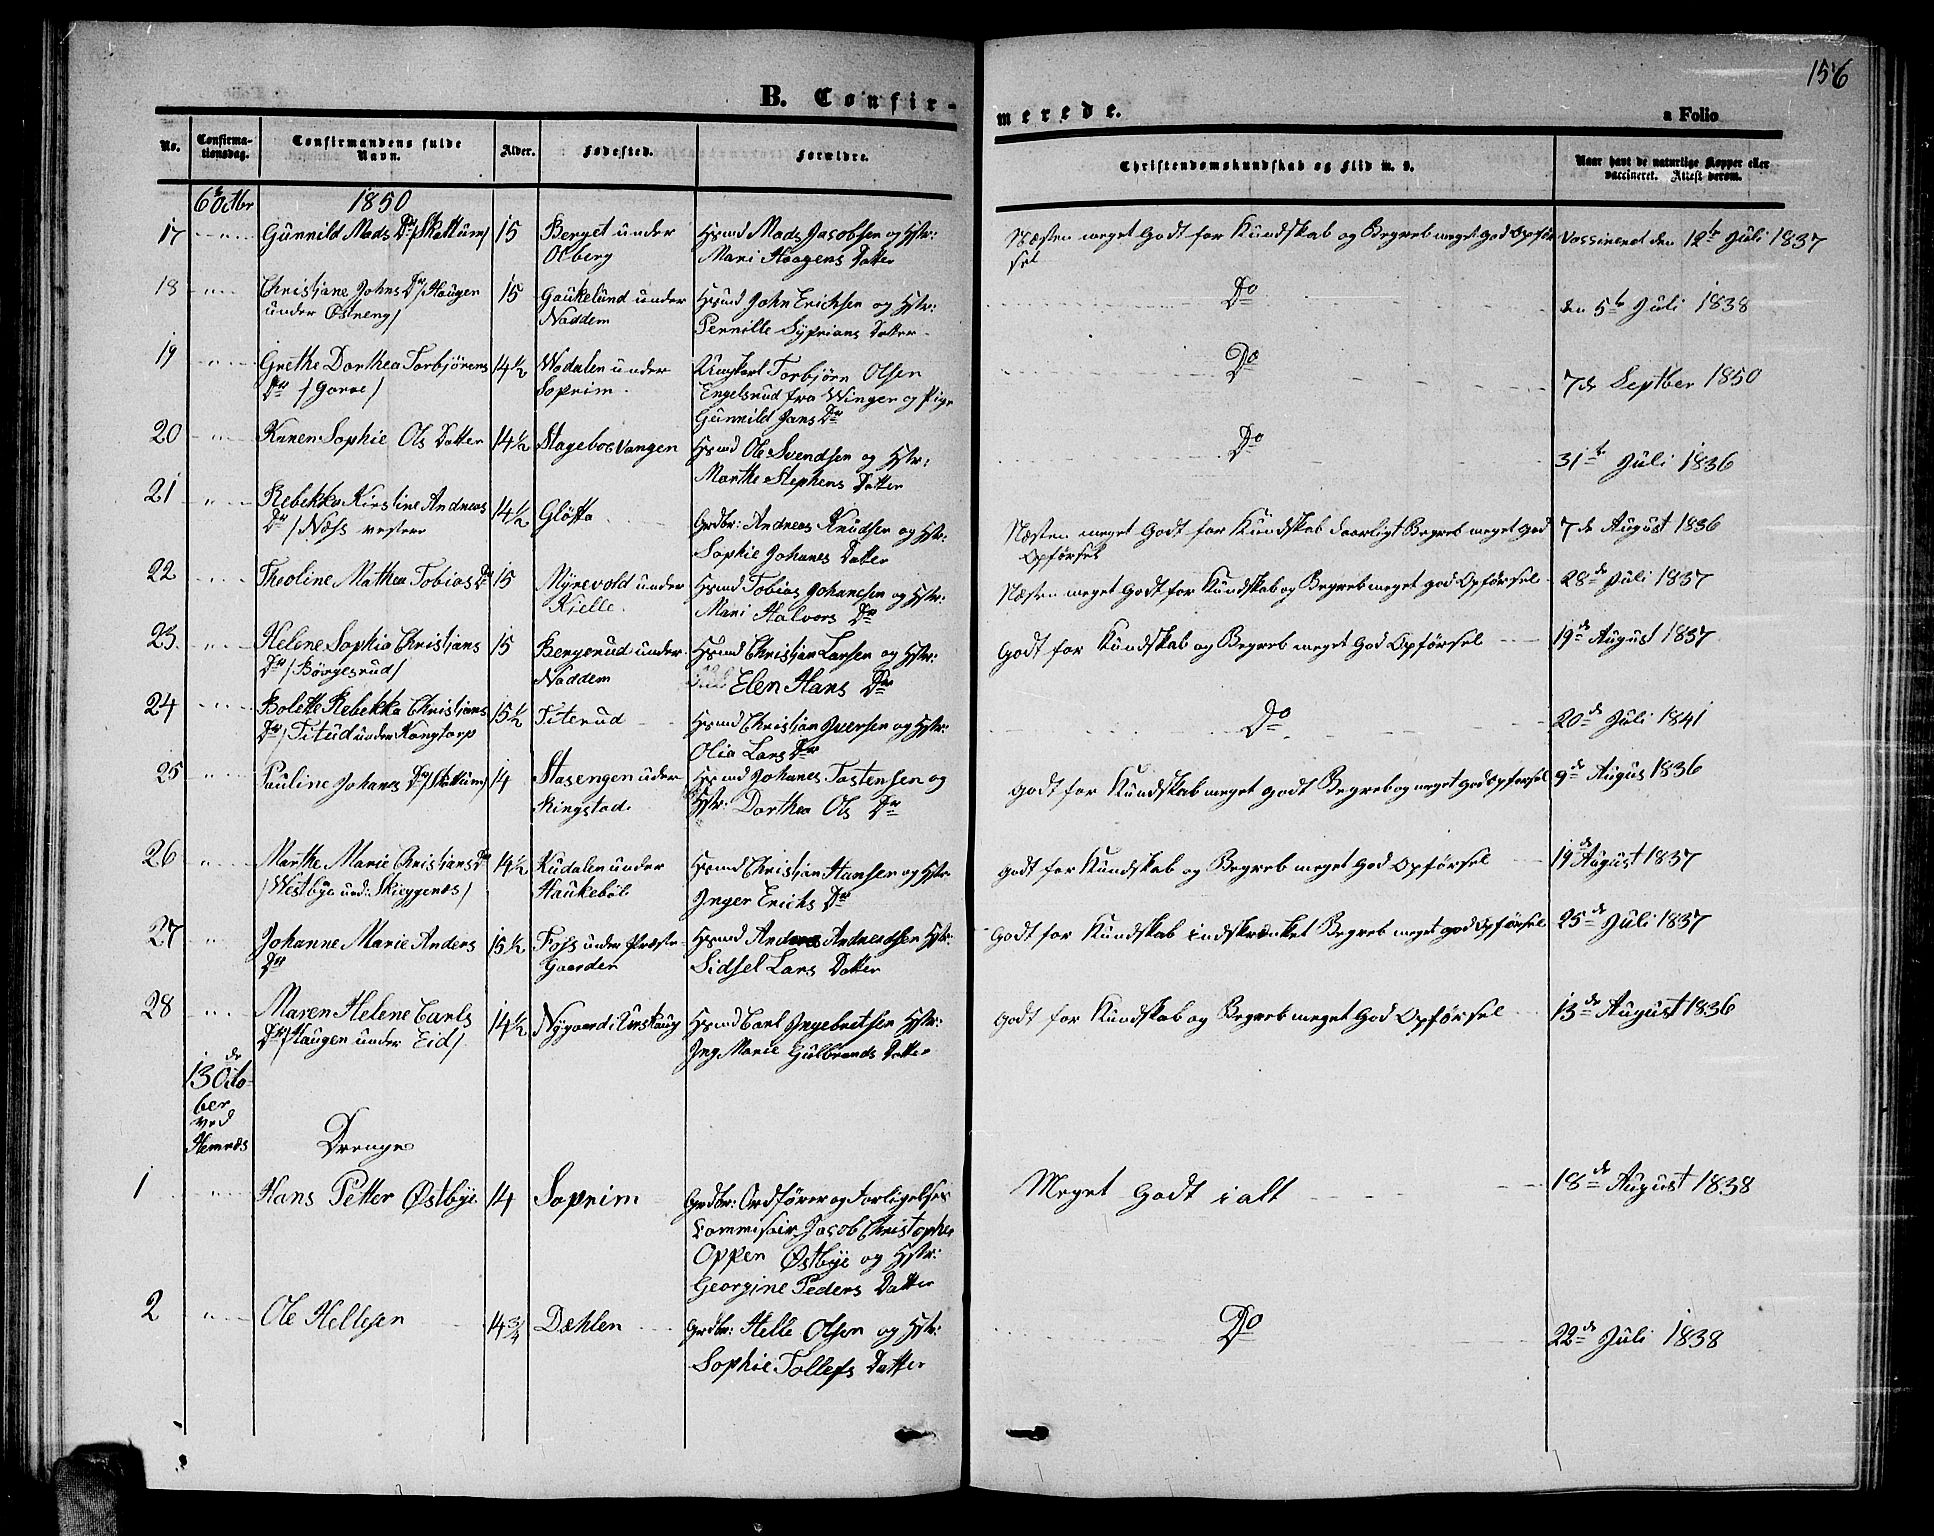 156
B. Confir-
merede.
a Folio
No.
Confirma-
tionsdag.
Confirmandens fulde
Navn.
Alder.
Fødested.
Forældre.
Christendomskundskab og Flid m. v.
Naar havt de naturlige Kopper eller
vaccineret. Attest derom.
6te Octbr 1850
17 Gunnild Mads Dr /Skattum/ 15 Berget under Hsmd Mads Jacobsen og Hstr: Næsten meget Godt for Kundskab og Begreb meget God Opfør Vassineret den 12te Juli 1837
Olberg Mari Haagens Datter sel
18 Christiane Johns Dr /Haugen 15 Gaukelund under Hsmd John Erichsen og Hstr: Do den 5te Juli 1838
under Østneng/ Naddem Pernille Syprians Datter
19 Grethe Dorthea Torbjørens 14½ Wadalen under Ungkarl Torbjørn Olsen Do 7de Septber 1850
Dr /Garae/ Soprim Engelsrud fra Winger og Pige
Gunnild Jans Dr
20 Karen Sophie Ols Datter 14½ Stageboe Vangen Hsmd Ole Svendsen og Hstr: Do 31te Juli 1836
Marthe Stephens Datter
21 Rebekka Kirstine Andreas 14½ Gløtta Grdbr: Andreas Knudsen og Hstr: Næsten meget Godt for Kundskab daarligt Begreb meget God 7de August 1836
Dr /Næss vestere Sophie Johanes Datter Opførsel
22 Theoline Mathea Tobias Dr 15 Myrevold under Hsmd Tobias Johanesen og Hstr: Næsten meget Godt for Kundskab og Begreb meget God Opførsel 28de Juli 1837
Kjelle. Mari Halvors Dr
23. Helene Sophia Christians 15 Bergerud under Hsmd Christian Larsen og Hstr: Godt for Kundskab og Begreb meget God Opførsel 19de August 1837
Dr /Børgesrud/ Naddem Elen Hans Dr
24 Bolette Rebekka Christians 15½ Titerud Hsmd Christian Iversen og Hstr: Do 20de Juli 1841
Dr /Titud under Kongtorp Olia Lars Dr
25 Pauline Johans Dr /Skattum/ 14 Stasengen under Hsmd Johanes Tostensen og Godt for Kundskab meget godt Begreb og meget God Opførsel 9de Augus 1836
Ringstad. Hstr: Dorthea Ols Dr
26 Marthe Marie Christians Dr 14½ Kudalen under Hsmd Christian Hansen og Hstr: Godt for Kundskab og Begreb meget God Opførsel 19de August 1837
/Westbye und: Skieggenæs/ Haukebøl Inger Erichs Dr
27 Johanne Marie Anders 15½ Foss under Præste- Hsmd Anders Andreasen Hstr: Godt for Kundskab indskrænket Begreb meget God Opførsel 25de Juli 1837
Dr Gaarden Sidsel Lars Datter
28 Maren Helene Carls 14½ Nygaard i Urskaug Hsmd Carl Ingebretsen Hstr: Godt for Kundskab og Begreb meget God Opførsel 13de August 1836
Dr /Haugen under Eid/ Ing Marie Gulbrands Datter
13de Octo-
ber
ved
Hemnæs Drenge
1 Hans Petter Østbye 14 Soprim Grdbr: Ordfører og Forligelses Meget Godt i alt 18de August 1838
Commisair Jacob Christopher
Oppen Østbye og Hstr:
Georgine Peders Datter
2 Ole Hellesen 14¾ Dæhlen Grdbr: Helle Olsen og Hstr: Do 22de Juli 1838
Sophie Tollefs Datter